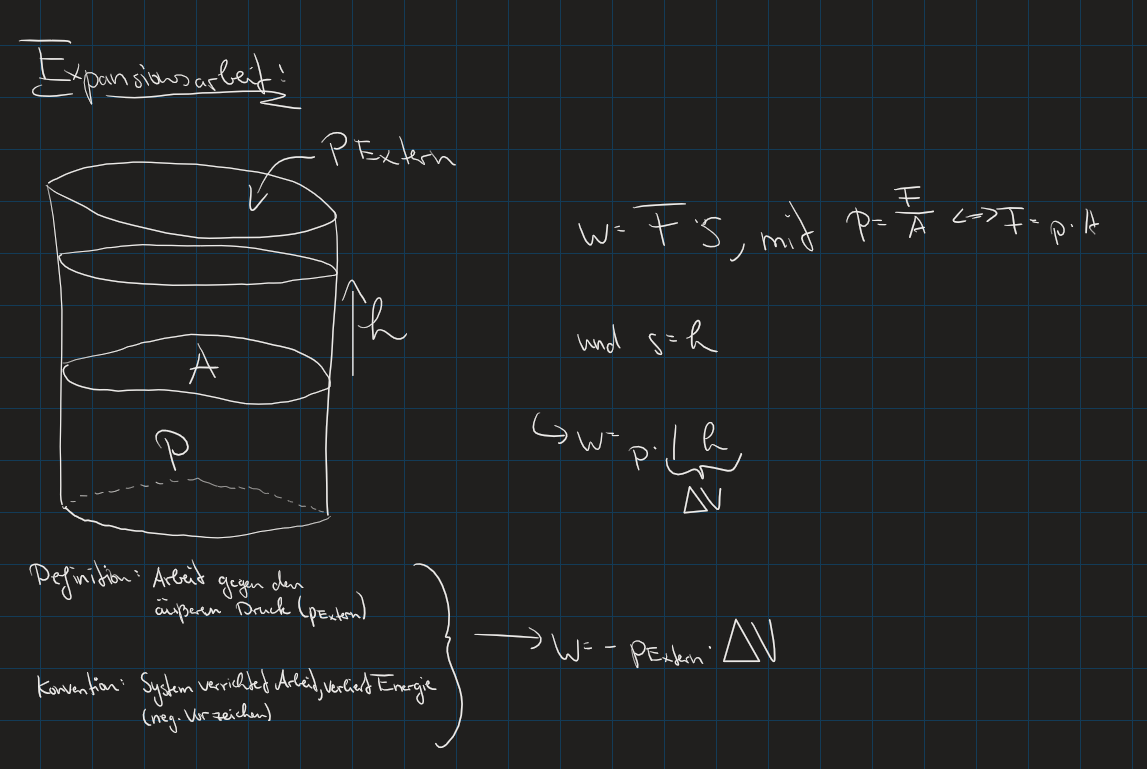 Expansionsarbeit:
P Extern
h
A
P
W = F · s, mit p = F/A <=> F = p · A
und s = h
↳ W = p · | h
ΔV
Definition: Arbeit gegen den
äußeren Druck (pExtern)
Konvention: System verrichtet Arbeit, verliert Energie
(neg. Vorzeichen)
→ W = - pExtern · ΔV